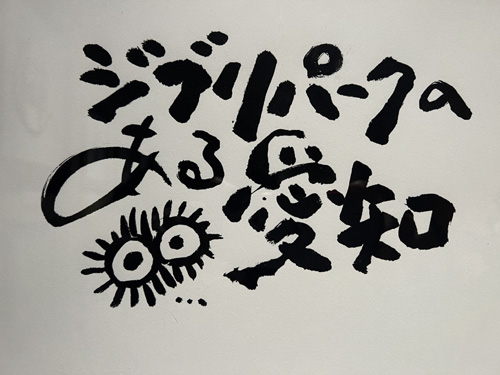 ジブリパークの
ある愛知